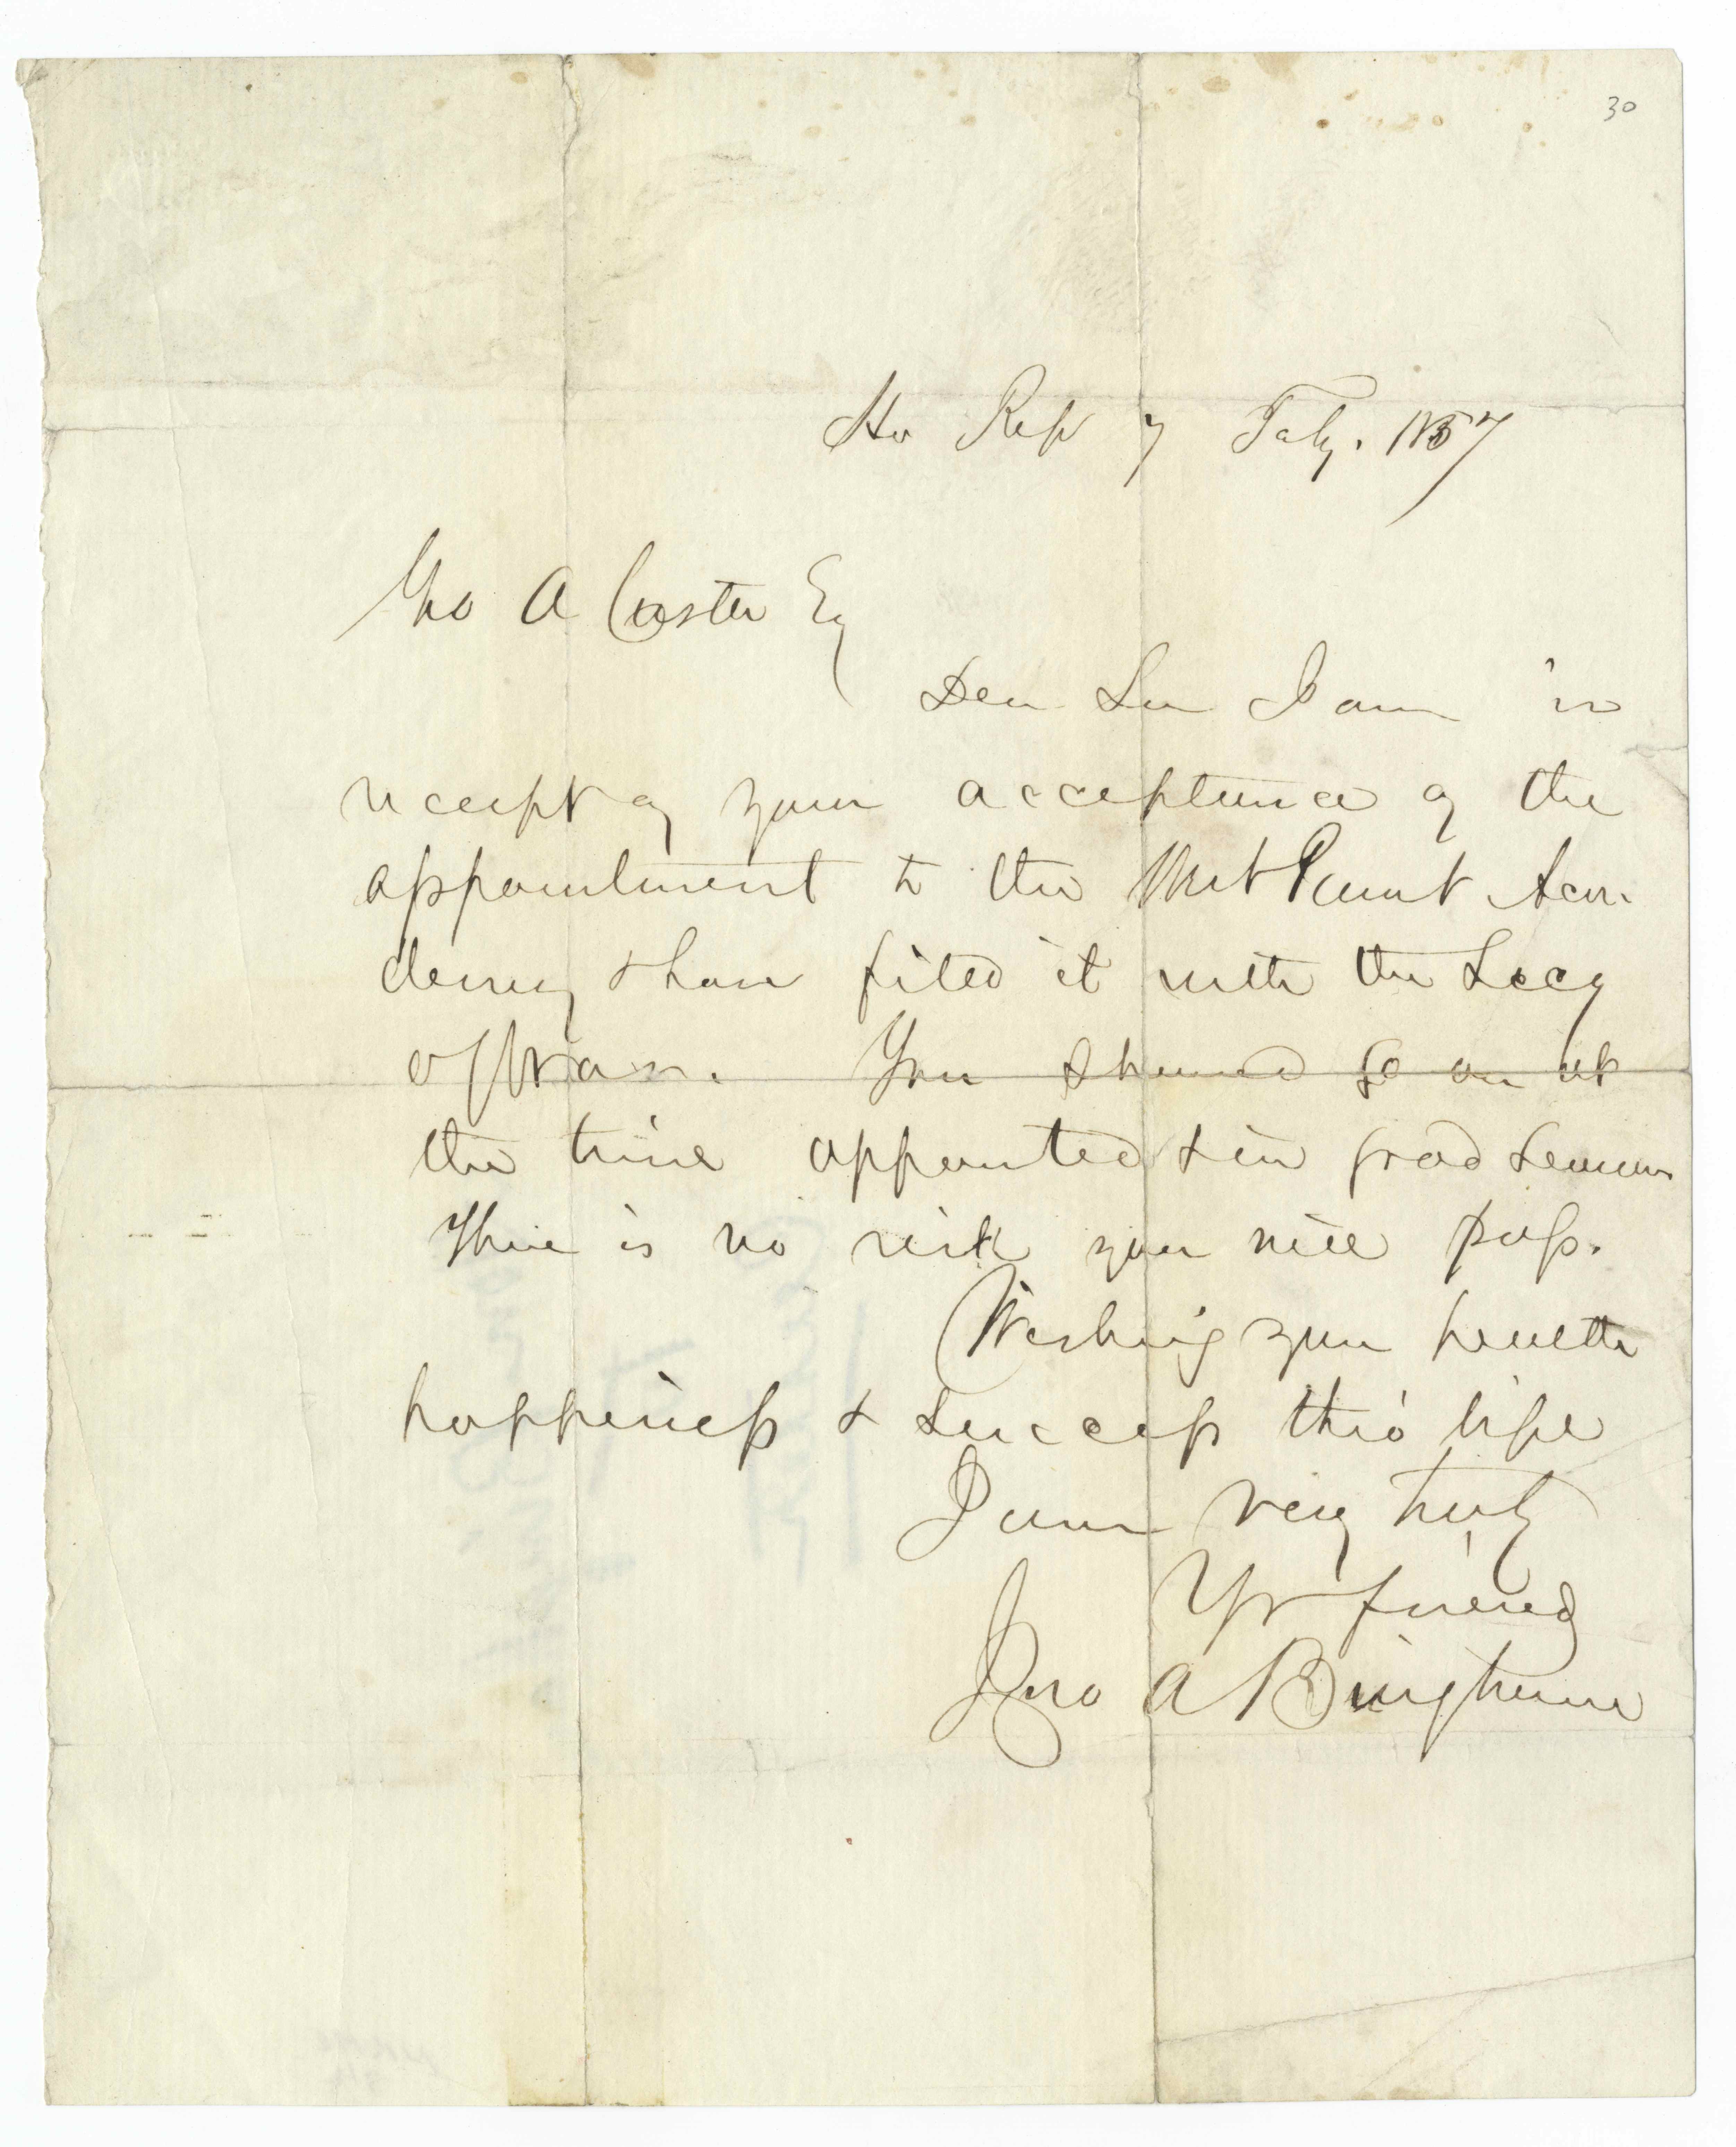 30
Ho Rep 7 Feby. 1857
Geo A Custer Esq
Dear Sir I am in
receipt of your acceptance of the
appointment to the West Point Aca-
demy & have filed it with the Secy
of War. You should go on at
the time appointed & in good
There is no risk you will pass.
Wishing you health
happiness & success thro' life
I am very truly
Yr friend
Jno A Bingham